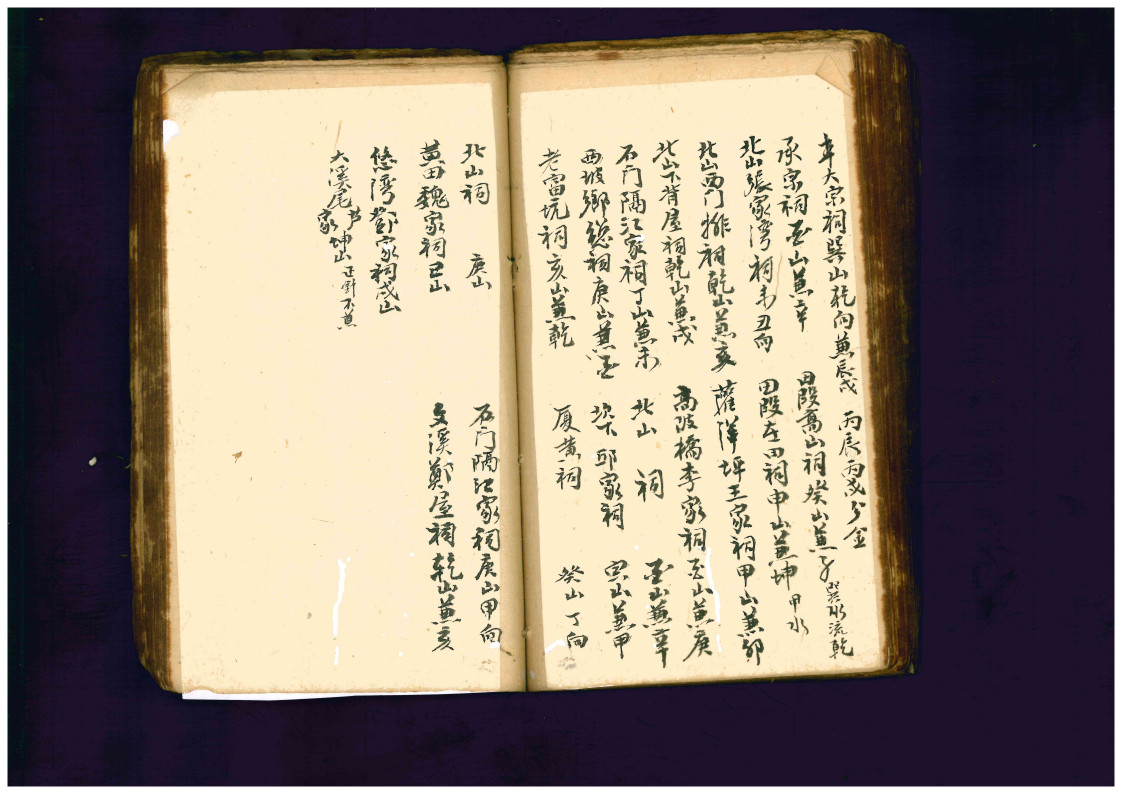 大宗祠巽山乾向兼辰戌 丙辰丙戌分金
承宗祠酉山兼辛 田段高山祠癸山兼子 巽水流乾
北山張家湾祠未丑向 田段左田祠申山兼坤 甲水
北山西门排祠乾山兼亥 蘿洋坪王家祠甲山兼卯
北山下背屋祠乾山兼戌 高陂橋李家祠酉山兼庚
石门隔江家祠丁山兼未 北山 祠 酉山兼辛
西坡鄉総祠庚山兼酉 坎下邱家祠 寅山兼甲
老富坑祠亥山兼乾 厦黄祠 癸山丁向
北山祠 庚山 石门隔江家祠庚山甲向
黃田魏家祠巳山 文溪鄭屋祠乾山兼亥
悠湾鄧家祠戌山
大溪尾尹家坤山 正針不兼